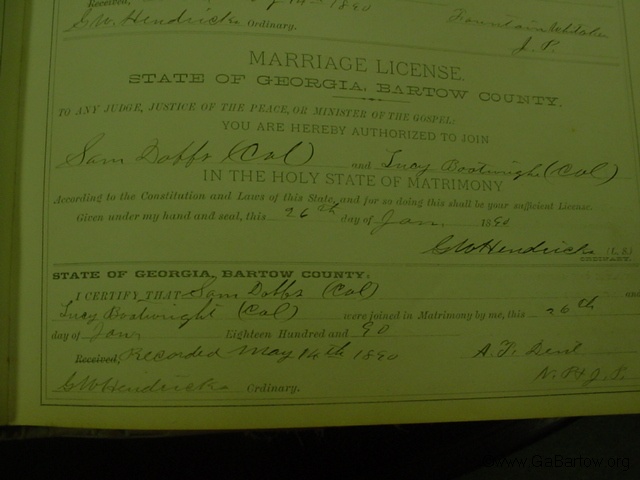 Received, 14th 1890
GW Hendricks Ordinary.
Fountain
J. P.
MARRIAGE LICENSE.
STATE OF GEORGIA, BARTOW COUNTY.
TO ANY JUDGE, JUSTICE OF THE PEACE, OR MINISTER OF THE GOSPEL:
YOU ARE HEREBY AUTHORIZED TO JOIN
Sam Dobbs (Col) and Lucy Boatwright (Col)
IN THE HOLY STATE OF MATRIMONY
According to the Constitution and Laws of this State, and for so doing this shall be your sufficient License.
Given under my hand and seal, this 26th day of Jan 1890
GW Hendricks (L. S.)
ORDINARY.
STATE OF GEORGIA, BARTOW COUNTY:
I CERTIFY THAT Sam Dobbs (Col) and
Lucy Boatwright (Col) were joined in Matrimony by me, this 26th
day of Jan, Eighteen Hundred and 90
Received, Recorded May 14th 1890 A. T. Dent
GW Hendricks Ordinary. N. P. & J. P.
www.GaBartow.org